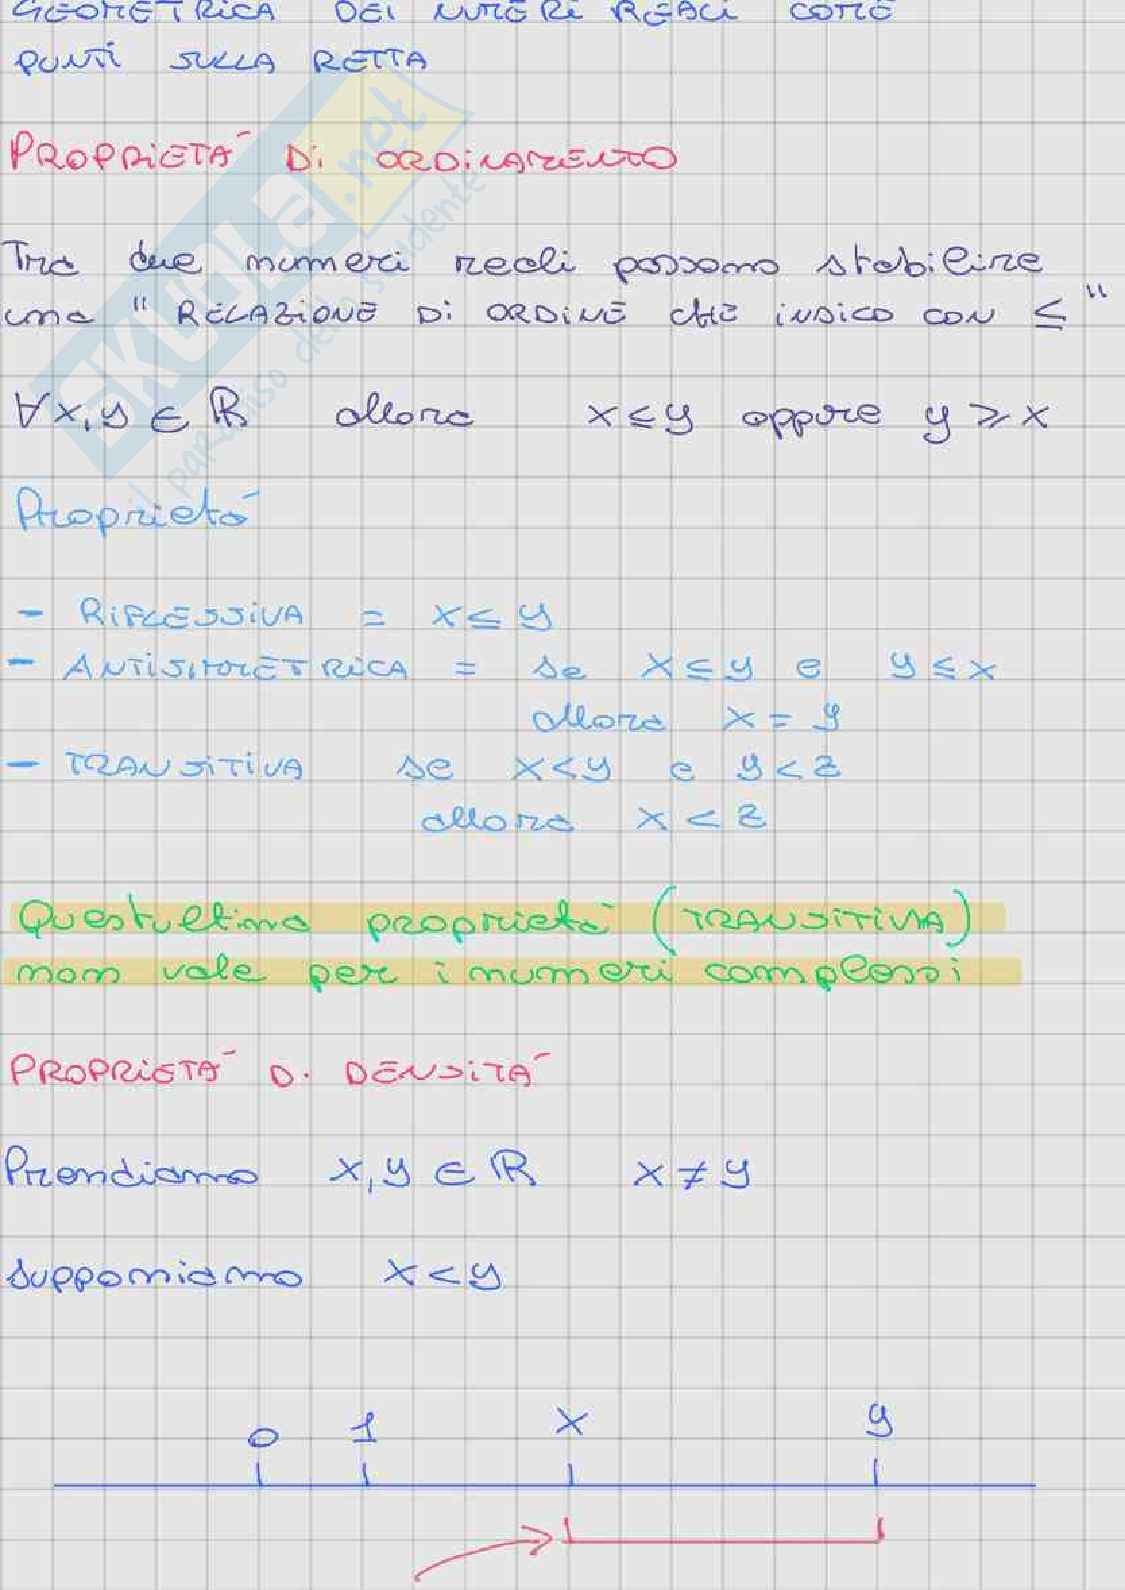 GEOMETRICA DEI NUMERI REALI COME
PUNTI SULLA RETTA
PROPRIETÁ DI ORDINAMENTO
Tra due numeri reali possono stabilire
una "RELAZIONE DI ORDINE CHE INDICO CON ≤"
∀x,y ∈ ℝ allora x≤y oppure y⩾x
Proprietá
- RIFLESSIVA = x≤y
- ANTISIMMETRICA = se x≤y e y≤x
allora x=y
- TRANSITIVA se x<y e y<z
allora x<z
Quest'ultima proprietá (TRANSITIVA)
non vale per i numeri complessi
PROPRIETÁ DI DENSITÁ
Prendiamo x,y ∈ ℝ x≠y
supponiamo x<y
0 1 x y
SKUOLA.net
il paradiso dello studente